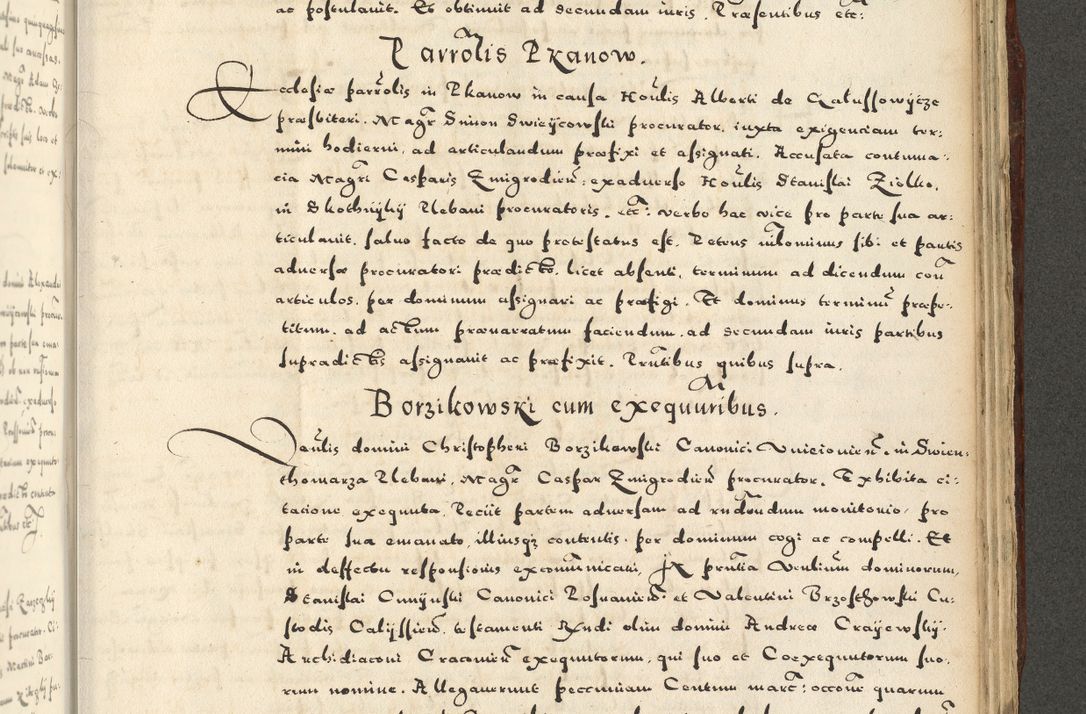 ac postulauit. Et obtinuit ad secundam iuris. Præsentibus etc:
Parrolis Pkanow.
Ecclesiæ parrolis in Pkanow in causa Honlis Alberti de Calussowycze
præsbiteri. Magr Simon Swieycowski procurator. iuxta exigenciam ter:
mini hodierni, ad articulandum præfixi et assignati. Accusata contuma:
cia Magri Casparis Zmigrodien: exaduerso Honlis Stanislai Ziolko,
in Skothnyky Plebani procuratoris. etc: verbo hac vice pro parte sua ar:
ticulauit. saluo facto de quo protestatus est. Petens nilominus sibi et partis
aduersæ procuratori prædicto. licet absenti, terminum ad dicendum con
articulos. per dominum assignari ac præfigi. Et dominus terminu præpe:
titum. ad actum prænarratum faciendum. ad secundam iuris partibus
supradictis assignauit ac præfixit. Prntibus quibus supra.
Borzikowski cum exequutribus.
Venlis domini Christopheri Borzikowski Canonici Vnicionien. in Swien:
thomarza Plebani, Magr Caspar Zmigrodien procurator. Exhibita ci:
tacione exequuta. Peciit partem aduersam ad rndendum monitorio, pro
parte sua emanato, illiusqz contentis. per dominum cogi ac compelli. Et
in deffectu responsionis excomunicari, In prntia Venlium dominorum,
Stanislai Canonici Posnanien: et Valentini Brzosthowski Cu:
stodis Calissien. testamenti Rndi olim domini Andreæ Crayewsky.
Archidiaconi Cracouien exequutorum, qui suo et Coexequutorum suo:
rum nomine. Allegauerunt peccuniam Centum marc: occone quarum